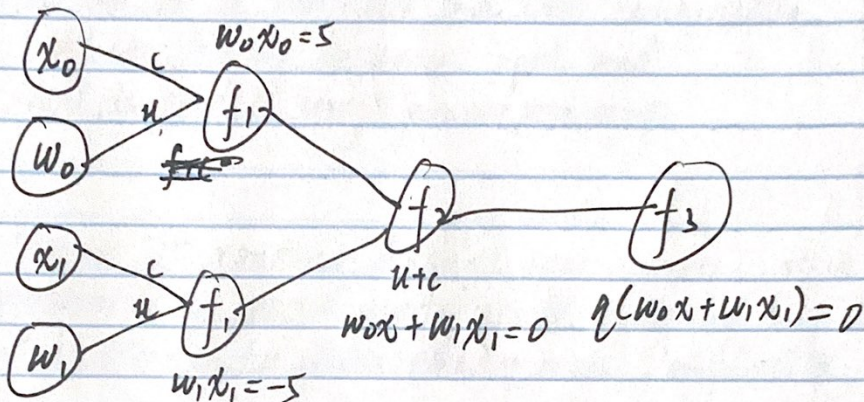 x₀
c
w₀x₀=5
u
f₁
w₀
x₁
c
u
f₁
w₁
w₁x₁=-5
f₂
u+c
w₀x+w₁x₁=0
f₃
q(w₀x+w₁x₁)=0